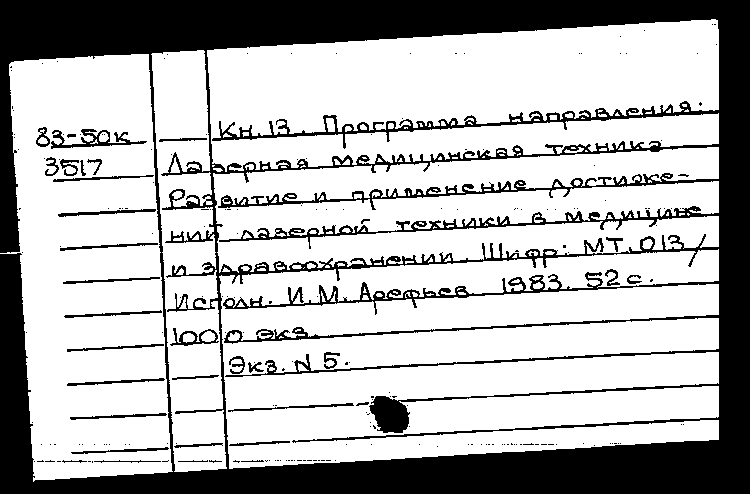 83-50к Кн. 13. Программа направления:
3517 Лазерная медицинская техника
Развитие и применение достиже-
ний лазерной техники в медицине
и здравоохранении. Шифр: МТ.013/
Исполн. И.М. Арефьев 1983. 52 с.
1000 экз.
Экз. N 5.